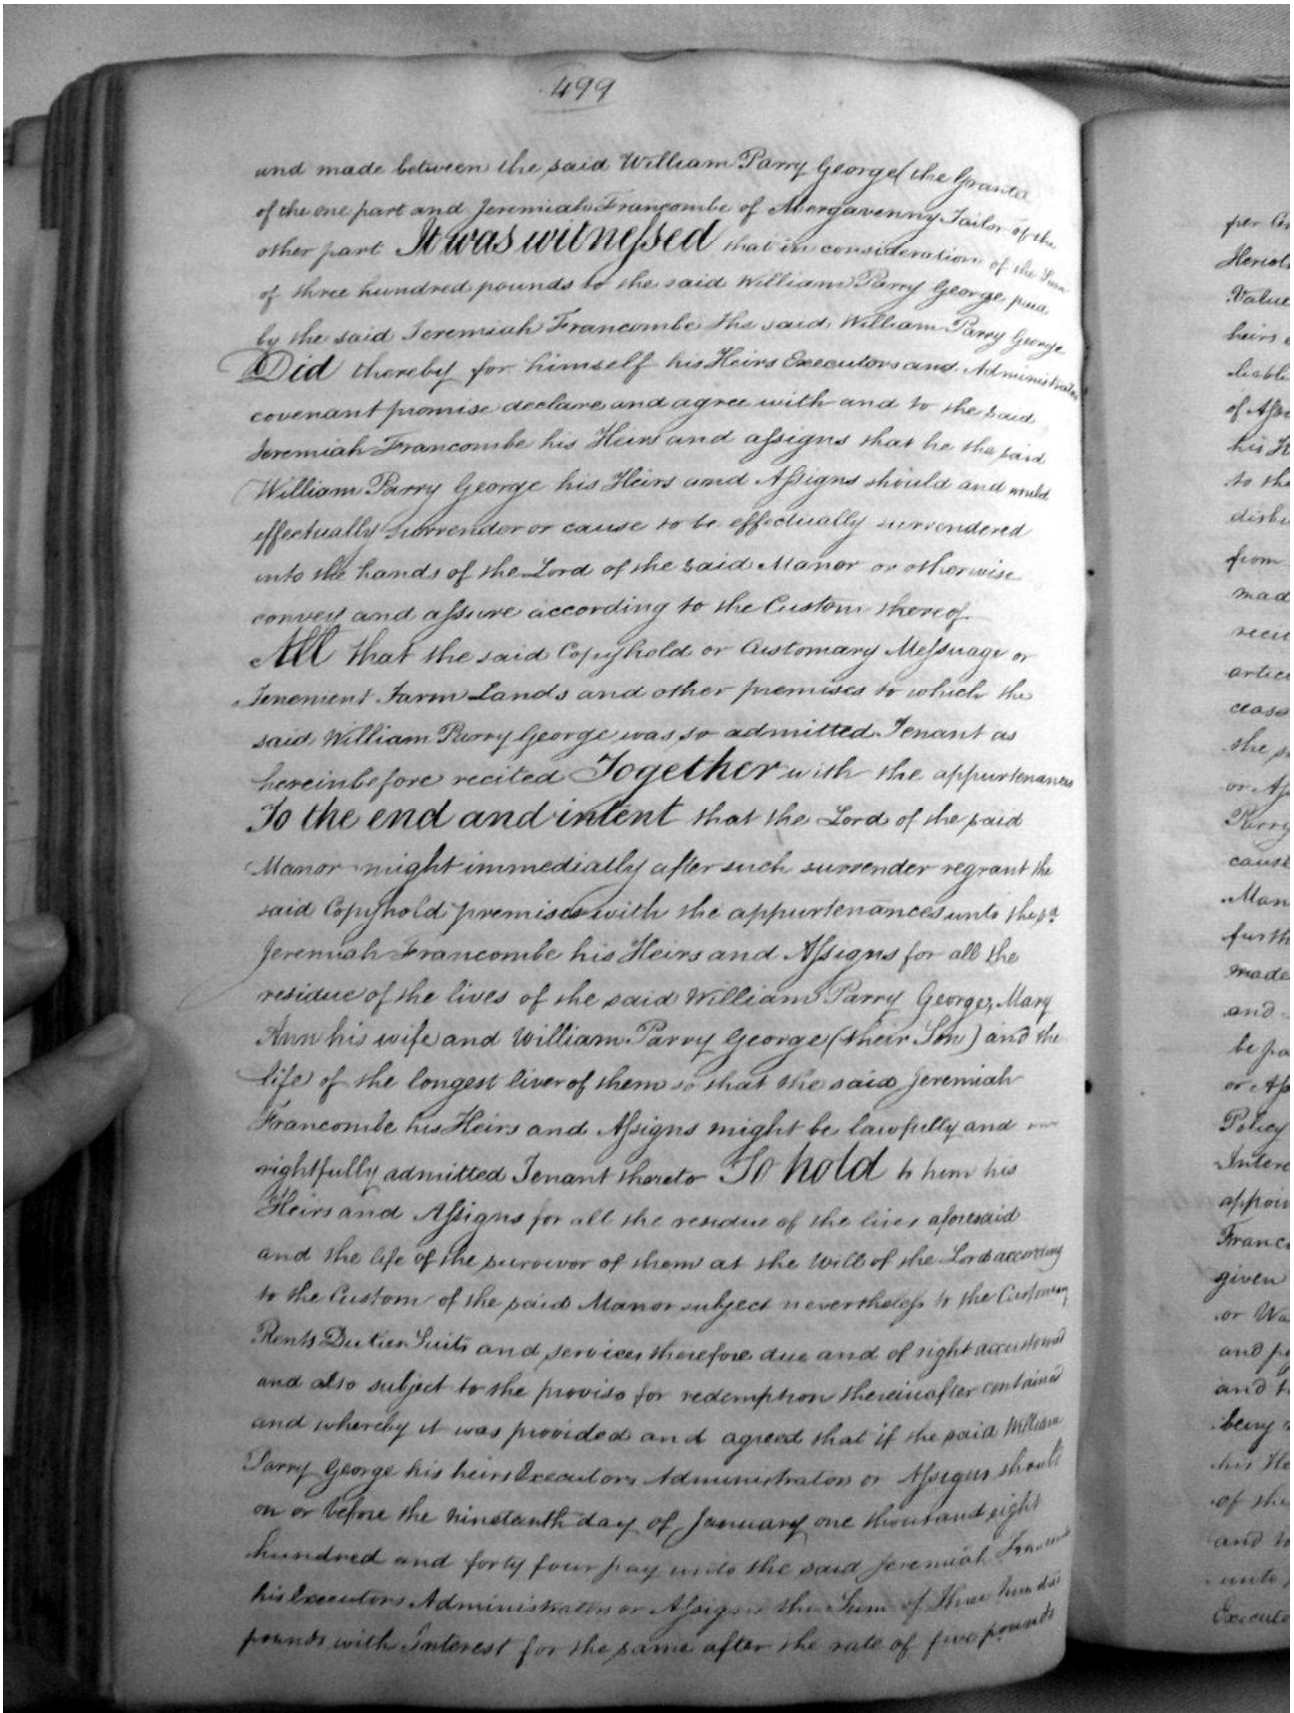 499
and made between the said William Parry George (the Grantor
of the one part and Jeremiah Francombe of Abergavenny Tailor of the
other part It was witnessed that in consideration of the Sum
of three hundred pounds to the said William Parry George paid
by the said Jeremiah Francombe the said William Parry George
Did thereby for himself his Heirs Executors and Administrators
covenant promise declare and agree with and to the said
Jeremiah Francombe his Heirs and assigns that he the said
William Parry George his Heirs and Assigns should and would
effectually surrender or cause to be effectually surrendered
into the hands of the Lord of the said Manor or otherwise
convey and assure according to the Custom thereof
All that the said Copyhold or Customary Messuage or
Tenement Farm Lands and other premises to which the
said William Parry George was so admitted Tenant as
hereinbefore recited Together with the appurtenances
To the end and intent that the Lord of the said
Manor might immedially after such surrender regrant the
said Copyhold premises with the appurtenances unto the sd
Jeremiah Francombe his Heirs and Assigns for all the
residue of the lives of the said William Parry George, Mary
Ann his wife and William Parry George (their Son) and the
life of the longest liver of them so that the said Jeremiah
Francombe his Heirs and Assigns might be lawfully and
rightfully admitted Tenant thereto To hold to him his
Heirs and Assigns for all the residue of the lives aforesaid
and the life of the survivor of them at the Will of the Lord according
to the Custom of the said Manor subject nevertheless to the Customary
Rents Duties Suits and services therefore due and of right accustomed
and also subject to the proviso for redemption thereinafter contained
and whereby it was provided and agreed that if the said William
Parry George his heirs Executors Administrators or Assigns should
on or before the nineteenth day of January one thousand eight
hundred and forty four pay unto the said Jeremiah Francombe
his Executors Administrators or Assigns the Sum of Three hundred
pounds with Interest for the same after the rate of five pounds
per
Heriot
Value
heirs
liable
of
his
to the
from
made
recit
artic
the
or
Parry
cause
Man
furth
made
and
be
or
Policy
Intere
appoin
Franco
given
or
and
and
being
his
of the
and
unto
Execute